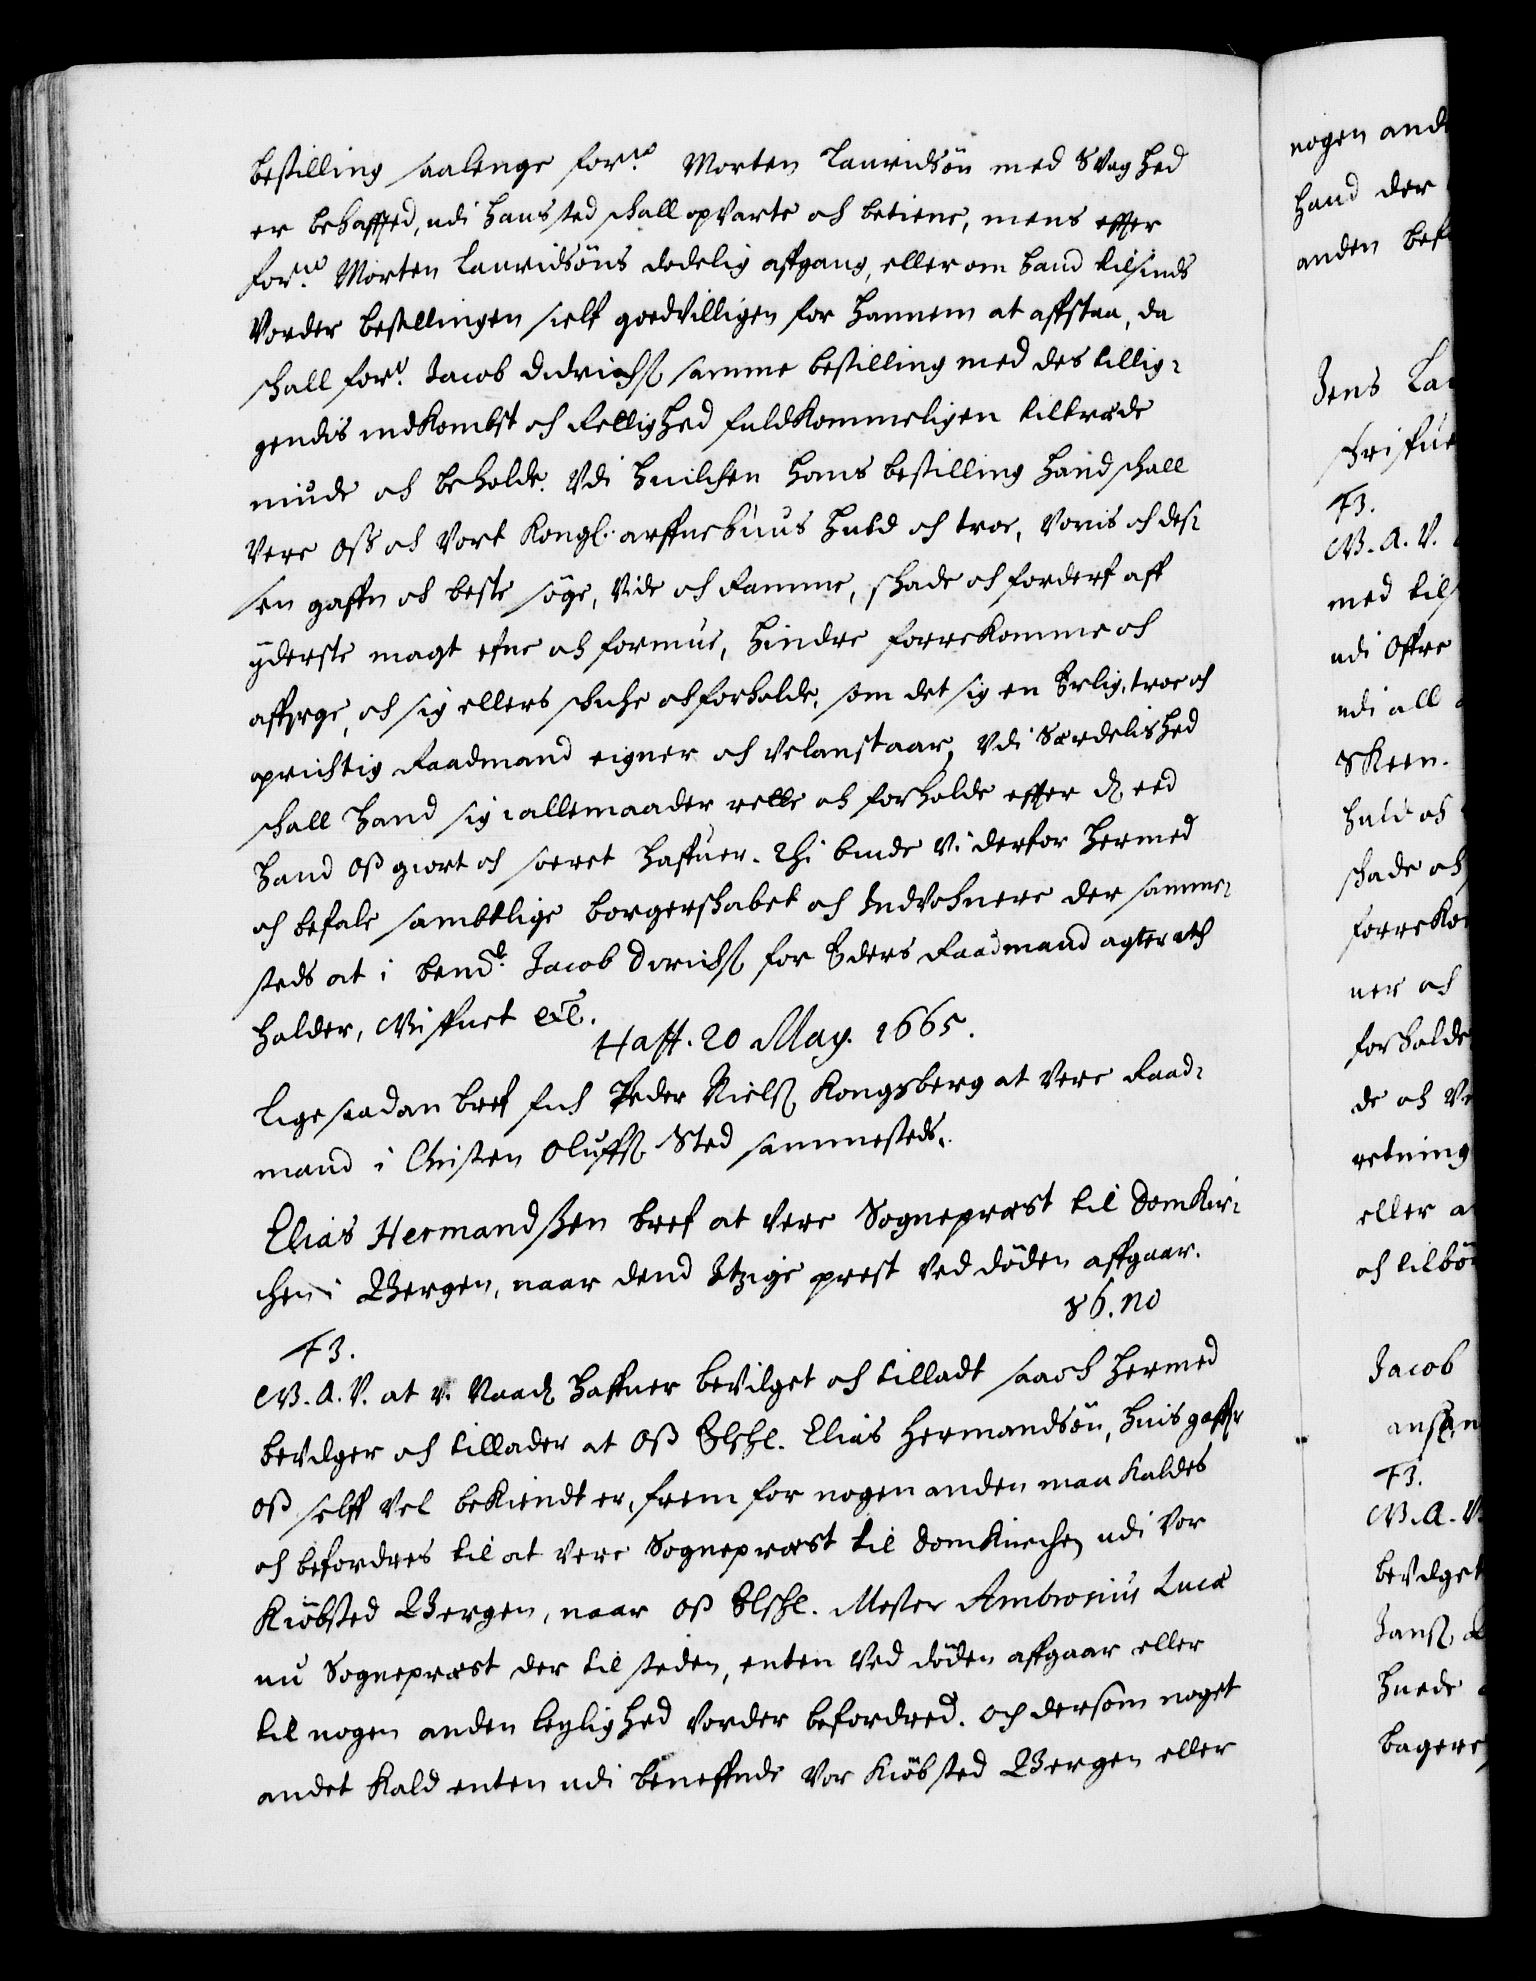 bestilling saalenge forne Morten Lauridsön med Svaghed
er behaffted, udi hans sted schall opvarte och betiene, mens effter
forne Morten Lauridsöns dödelig affgang, eller om hand tilsinds
Vorder bestillingen sielf goedvilligen for hannem at affstaa, da
schall forne Jacob Didrichs samme bestilling med des tillig-
gendis indkombst och Rettighed fuldkommeligen tiltræde
niude och beholde. Udi huilchen hans bestilling hand schall
Vere Oss och Vort Kongl. arffuehuus huld och troe, Voris och des-
sen gaffn och beste söge, Vide och Ramme, schade och forderf aff
yderste magt efne och formue, hindre forrekomme och
affverge, och sig ellers schiche och forholde, som det sig en Erlig, troe och
oprichtig Raadmand eigner och Velanstaar, Udi Særdelished
schall hand sig i allemaader rette och forholde effter den eed
hand Oss giort och soeret haffuer. Thi biude Vi derfor hermed
och befale sambtlige borgerschabet och Indvohnere der samme-
steds at i bemte Jacob Dirichs for Eders Raadmand agter och
holder, Giffuet etc.
Haff. 20 May. 1665.
Lige saadan bref fich Peder Niels Kongsberg at Vere Raad-
mand i Christen Oluffs Sted sammesteds.
Elias Hermandssen bref at Vere Sognepræst til Domkir-
chen i Bergen, naar dend Itzige prest Ved döden affgaar.
F3.
G. A. V. at v. Naade haffuer bevilget och tilladt saa och hermed
bevilger och tillader at Oss Elschl. Elias Hermandsön, huis gaffr
Oss self Vel bekiendt er, frem for nogen anden maa kaldes
och befordres til at Vere Sognepræst til Domkirchen udi Vor
Kiöbsted Bergen, naar Oss Elschl. Mester Ambrosius Lucæ
nu Sognepræst der til steden, enten Ved döden affgaar eller
til nogen anden leylighed Vorder befordred. Och dersom noget
andet Kald enten udi beneffnde Vor Kiöbsted Bergen eller
nogen and
hand der
anden bef
Jens La
F3.
G. A. V.
med til
udi Offre
udi all
Skeen.
huld och
schade och
forreko
ner och
forholde
de och Ve
retning
eller a
och tilbö
Jacob
F3.
G. A. V.
bevilget
Jans
huede
bagere